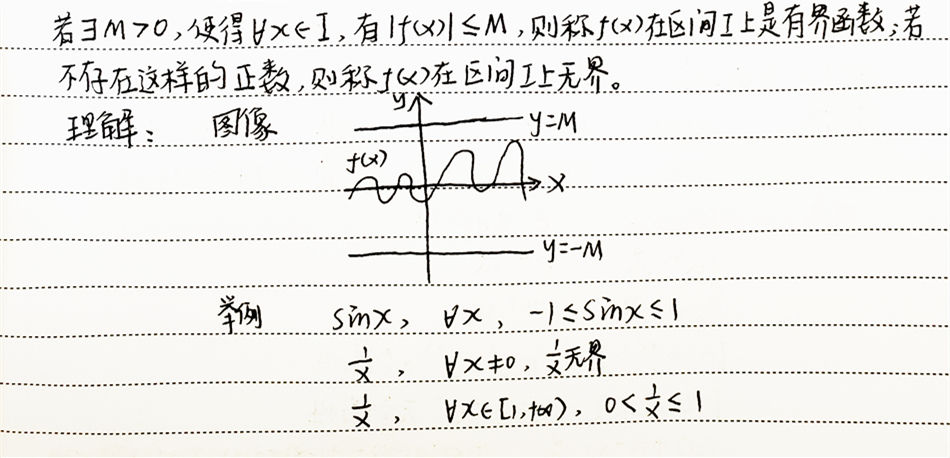 若∃M>0,使得∀x∈I,有|f(x)|≤M,则称f(x)在区间I上是有界函数;若
不存在这样的正数,则称f(x)在区间I上无界。
理解: 图像
y
y=M
f(x)
x
y=-M
举例 sinx, ∀x, -1≤sinx≤1
1/x, ∀x≠0, 1/x无界
1/x, ∀x∈[1,+∞), 0<1/x≤1